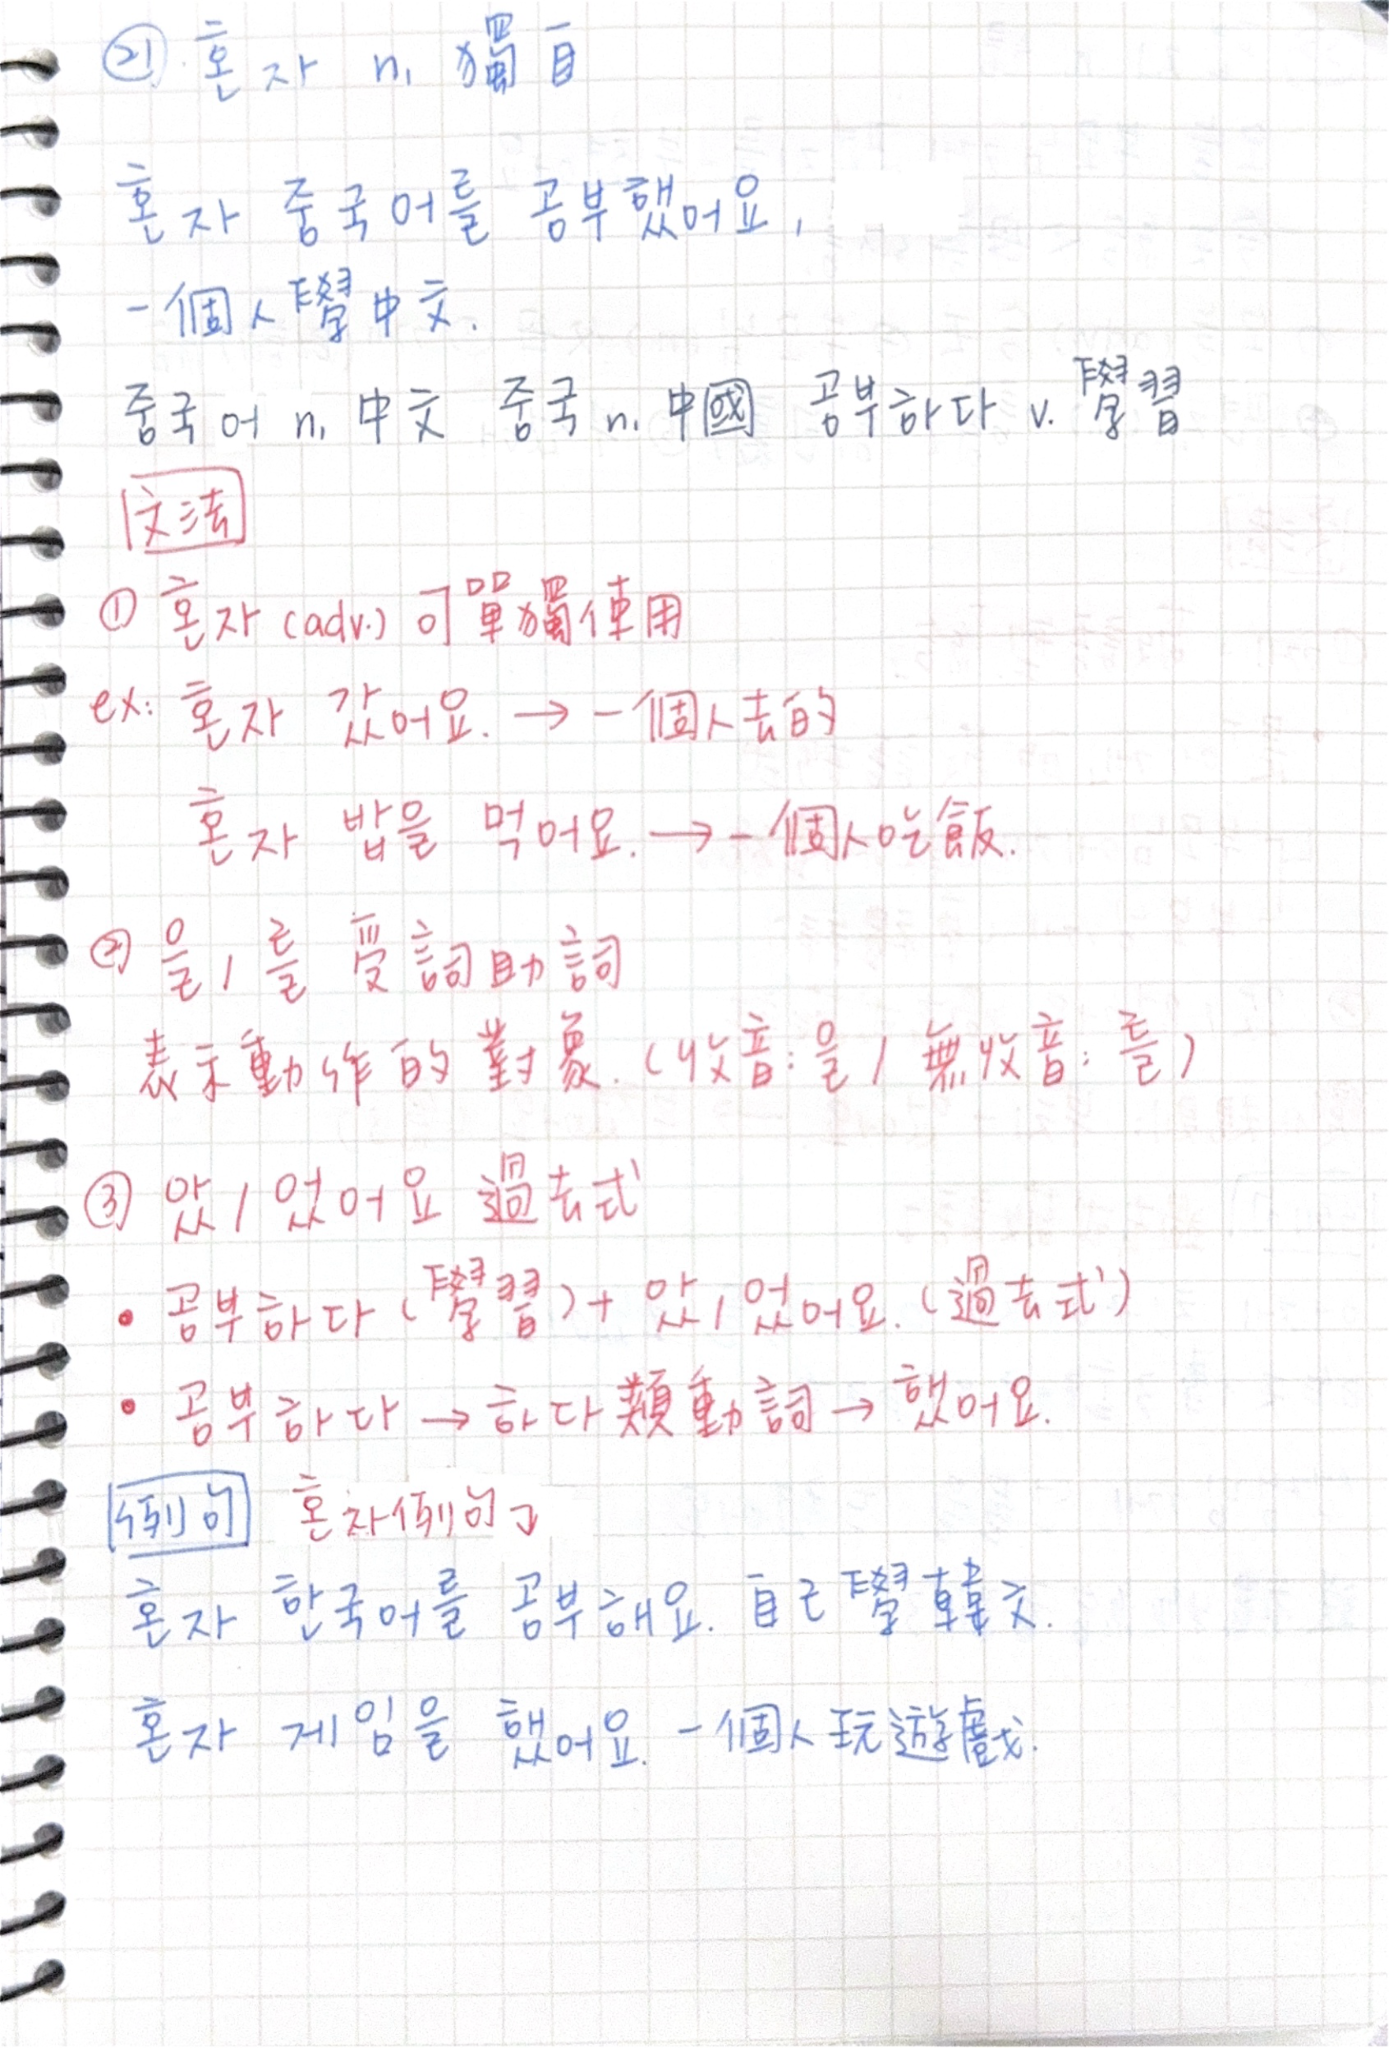 ㉑ 혼자 n. 獨自
혼자 중국어를 공부했어요.
一個人學中文.
중국어 n. 中文 중국 n. 中國 공부하다 v. 學習
文法
① 혼자 (adv.) 可單獨使用
ex: 혼자 갔어요. → 一個人去的
혼자 밥을 먹어요. → 一個人吃飯.
② 을 / 를 受詞助詞
表示動作的對象. (收音: 을 / 無收音: 를)
③ 았 / 었어요 過去式
• 공부하다 (學習) + 았 / 었어요. (過去式)
• 공부하다 → 하다類動詞 → 했어요.
例句 혼자例句
혼자 한국어를 공부해요. 自己學韓文.
혼자 게임을 했어요. 一個人玩遊戲.